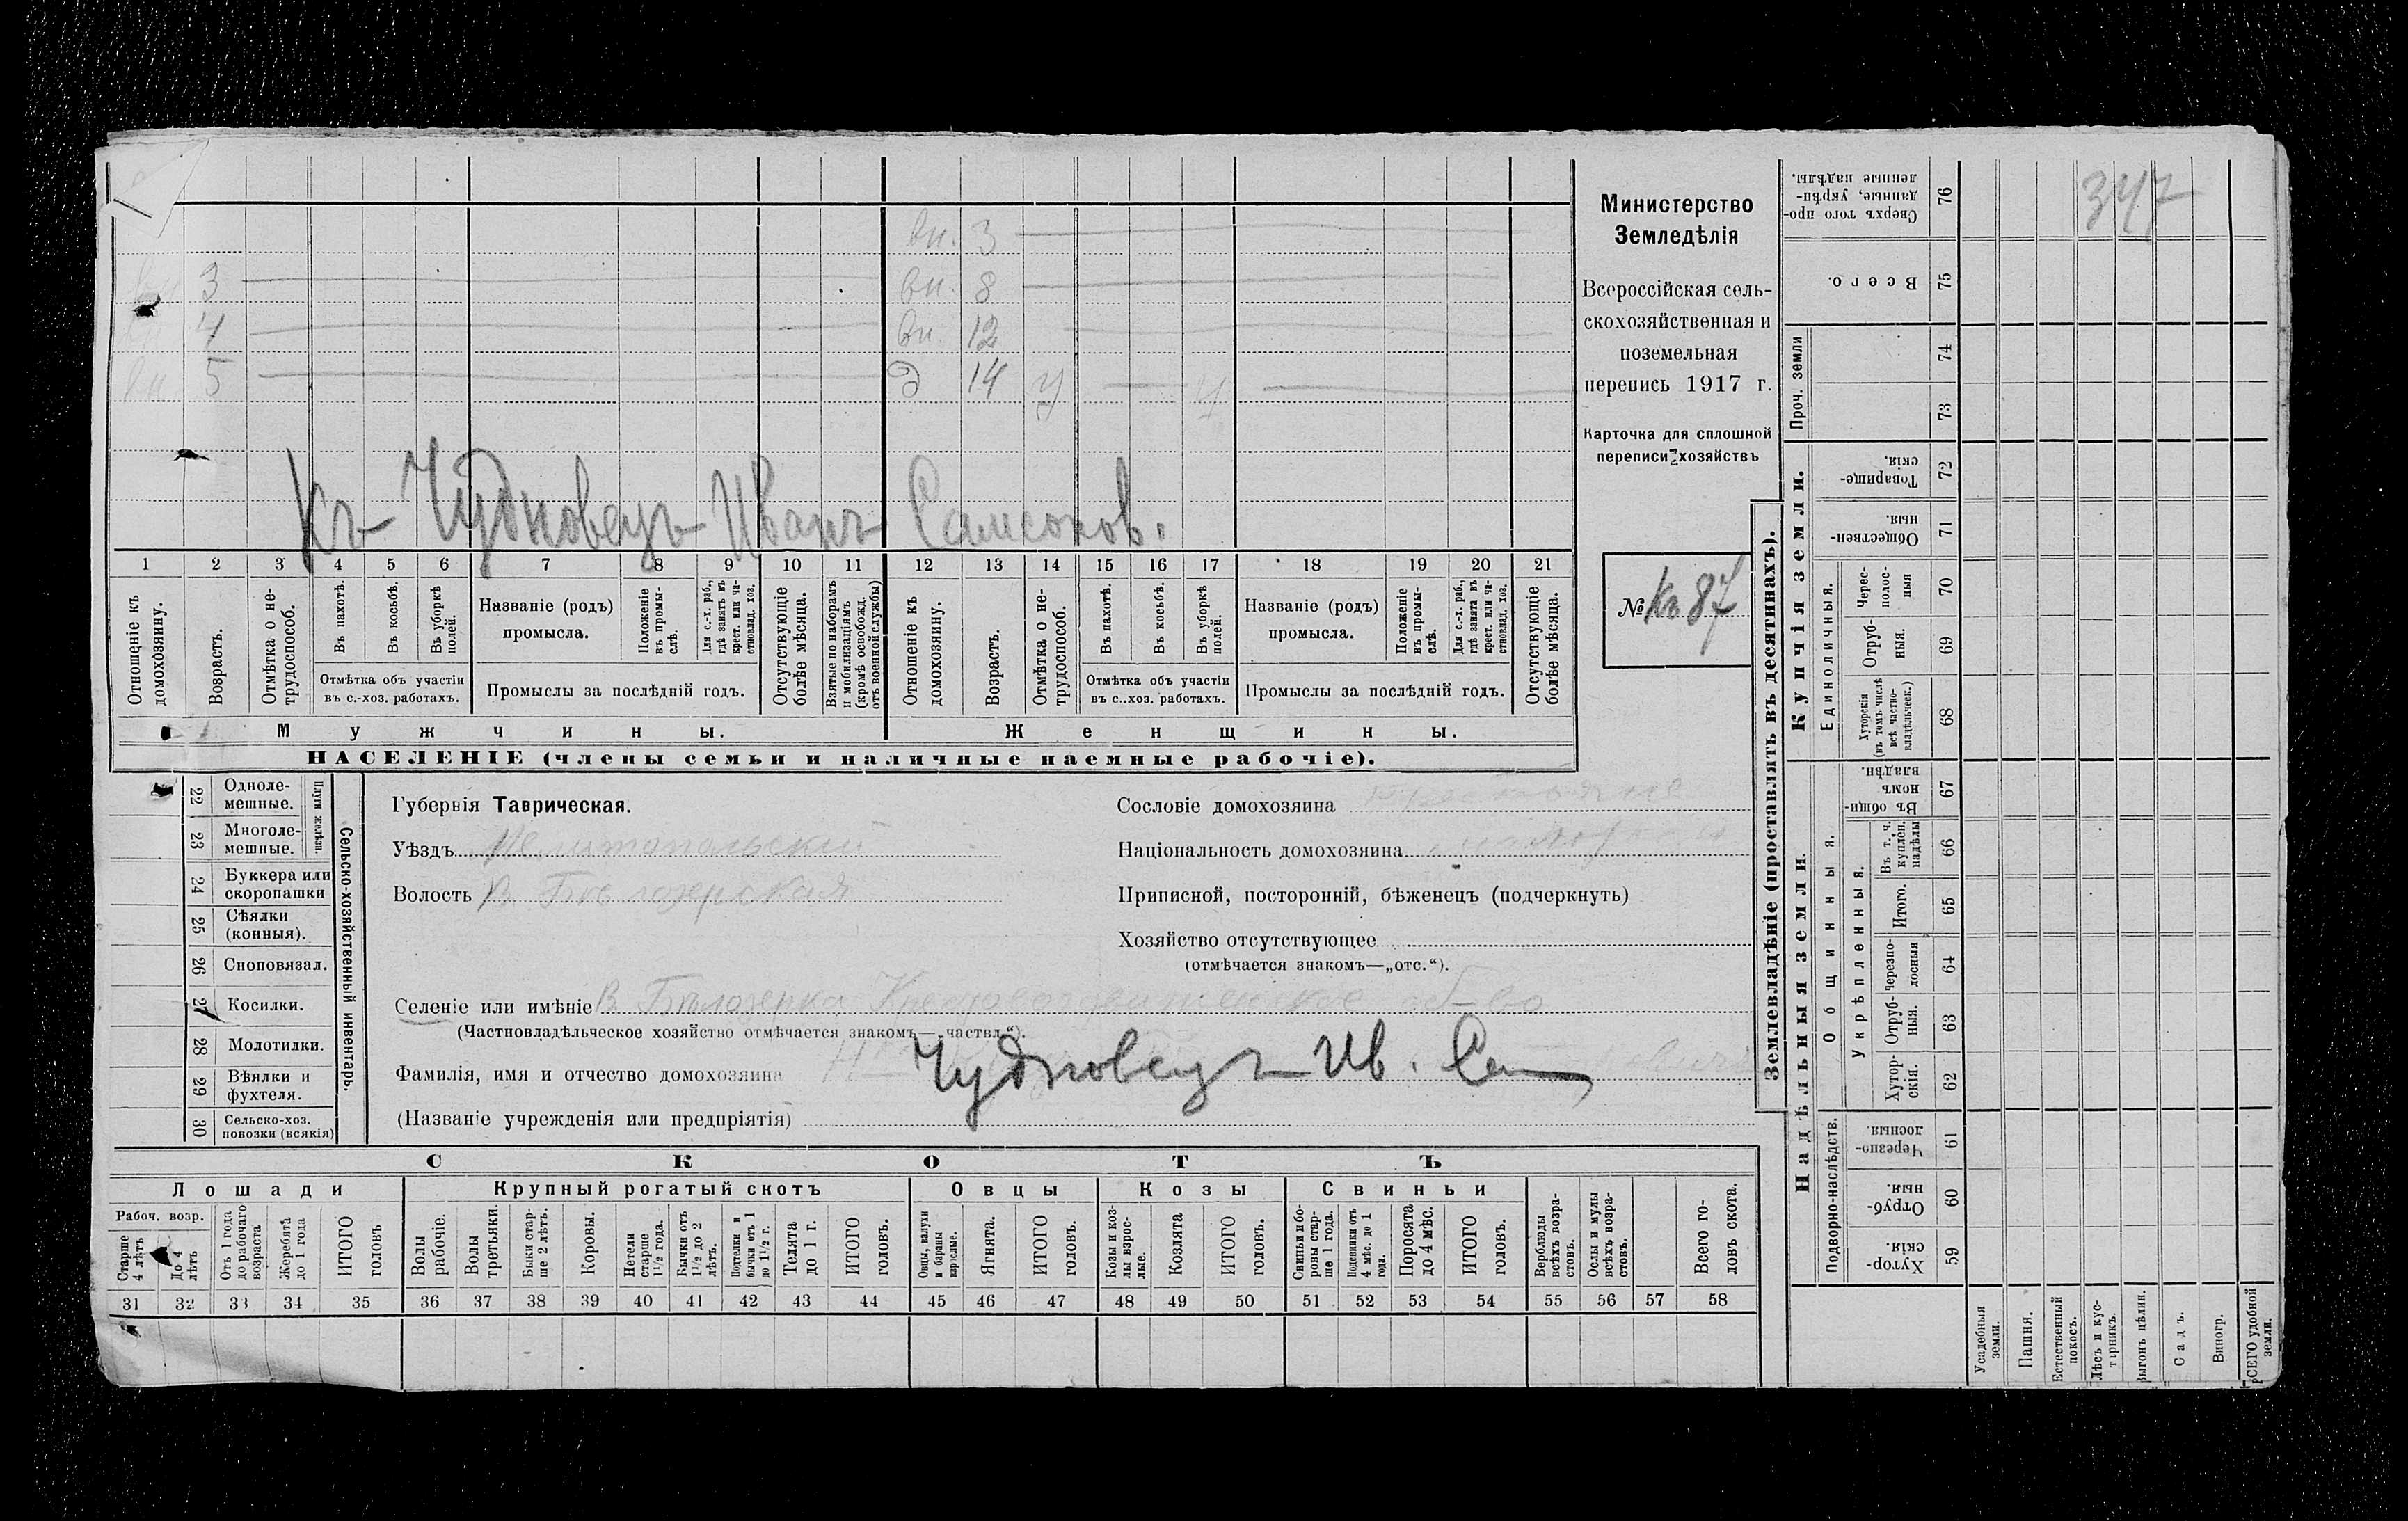 вн. 3
3 вн. 8
4 вн. 12
вн. 5 д 14 у у
Къ Чудновецъ Иванъ Самсонов.
1 2 3 4 5 6 7 8 9 10 11 12 13 14 15 16 17 18 19 20 21
Отношеніе къ домохозяину.
Возрастъ.
Отмѣтка о нетрудоспособ.
Въ пахотѣ.
Въ косьбѣ.
Въ уборкѣ полей.
Отмѣтка объ участіи въ с.-хоз. работахъ.
Названіе (родъ) промысла.
Положеніе въ промыслѣ.
Для с.-х. раб., гдѣ занятъ въ крест. или частновлад. хоз.
Промыслы за послѣдній годъ.
Отсутствующіе болѣе мѣсяца.
Взятые по наборамъ и мобилизаціямъ (кромѣ освобожд. отъ военной службы)
Отношеніе къ домохозяину.
Возрастъ.
Отмѣтка о нетрудоспособ.
Въ пахотѣ.
Въ косьбѣ.
Въ уборкѣ полей.
Отмѣтка объ участіи въ с..хоз. работахъ.
Названіе (родъ) промысла.
Положеніе въ промыслѣ.
Для с.-х. раб., гдѣ занята въ крест. или частновлад. хоз.
Промыслы за послѣдній годъ.
Отсутствующіе болѣе мѣсяца.
Мужчины. Женщины.
НАСЕЛЕНІЕ (члены семьи и наличные наемные рабочіе).
Министерство
Земледѣлія
Всероссійская сель-
скохозяйственная и
поземельная
перепись 1917 г.
Карточка для сплошной
переписи хозяйствъ
№ Къ 87
22 Одноле-мешные.
23 Многоле-мешные.
Плуги желѣзн.
24 Буккера или скоропашки
25 Сѣялки (конныя).
26 Сноповязал.
27 Косилки.
28 Молотилки.
29 Вѣялки и фухтеля.
30 Сельско-хоз. повозки (всякія)
Сельско-хозяйственный инвентарь.
Губернія Таврическая.
Уѣздъ Мелитопольскій
Волость В Бѣлозерская
Селеніе или имѣніе В. Бѣлозерка Крестовоздвиженское об-во
(Частновладѣльческое хозяйство отмѣчается знакомъ—„частвл.“).
Фамилія, имя и отчество домохозяина Чудновецъ Ив. Сам
(Названіе учрежденія или предпріятія)
Сословіе домохозяина
Національность домохозяина
Приписной, посторонній, бѣженецъ (подчеркнуть)
Хозяйство отсутствующее
(отмѣчается знакомъ—„отс.“).
СКОТЪ
Лошади Крупный рогатый скотъ Овцы Козы Свиньи
Рабоч. возр.
Старше 4 лѣтъ
До 4 лѣтъ
Отъ 1 года до рабочаго возраста
Жеребятъ до 1 года
ИТОГО головъ
Волы рабочіе.
Волы третьяки.
Быки старше 2 лѣтъ.
Коровы.
Нетели старше 1½ года.
Бычки отъ 1½ до 2 лѣтъ.
Подтелки и бычки отъ 1 до 1½ г.
Телята до 1 г.
ИТОГО головъ.
Овцы, валухи и бараны взрослые.
Ягнята.
ИТОГО головъ.
Козы и козлы взрослые.
Козлята
ИТОГО головъ.
Свиньи и боровы старше 1 года.
Подсвинки отъ 4 мѣс. до 1 года.
Поросята до 4 мѣс.
ИТОГО головъ.
Верблюды всѣхъ возрастовъ.
Ослы и мулы всѣхъ возрастовъ.
Всего головъ скота.
31 32 33 34 35 36 37 38 39 40 41 42 43 44 45 46 47 48 49 50 51 52 53 54 55 56 57 58
Землевладѣніе (проставлять въ десятинахъ).
347
Сверхъ того проданные, укрѣпленные надѣлы. 76
Всего. 75
Проч. земли 74 73
Купчія земли.
Товарищескія. 72
Общественныя. 71
Единоличныя.
Чересполосныя 70
Отрубныя. 69
Хуторскія (въ томъ числѣ всѣ частновладѣльческ.) 68
Надѣльныя земли.
Общинныя.
Въ общинномъ владѣн. 67
Укрѣпленныя.
Въ т. ч. куплен. надѣлы 66
Итого. 65
Черезполосныя 64
Отрубныя. 63
Хуторскія. 62
Подворно-наслѣдств.
Черезполосныя. 61
Отрубныя. 60
Хуторскія. 59
Усадебныя земли.
Пашня.
Естественный покосъ.
Лѣсъ и кустарникъ.
Выгонъ цѣлин.
Садъ.
Виногр.
ВСЕГО удобной земли.